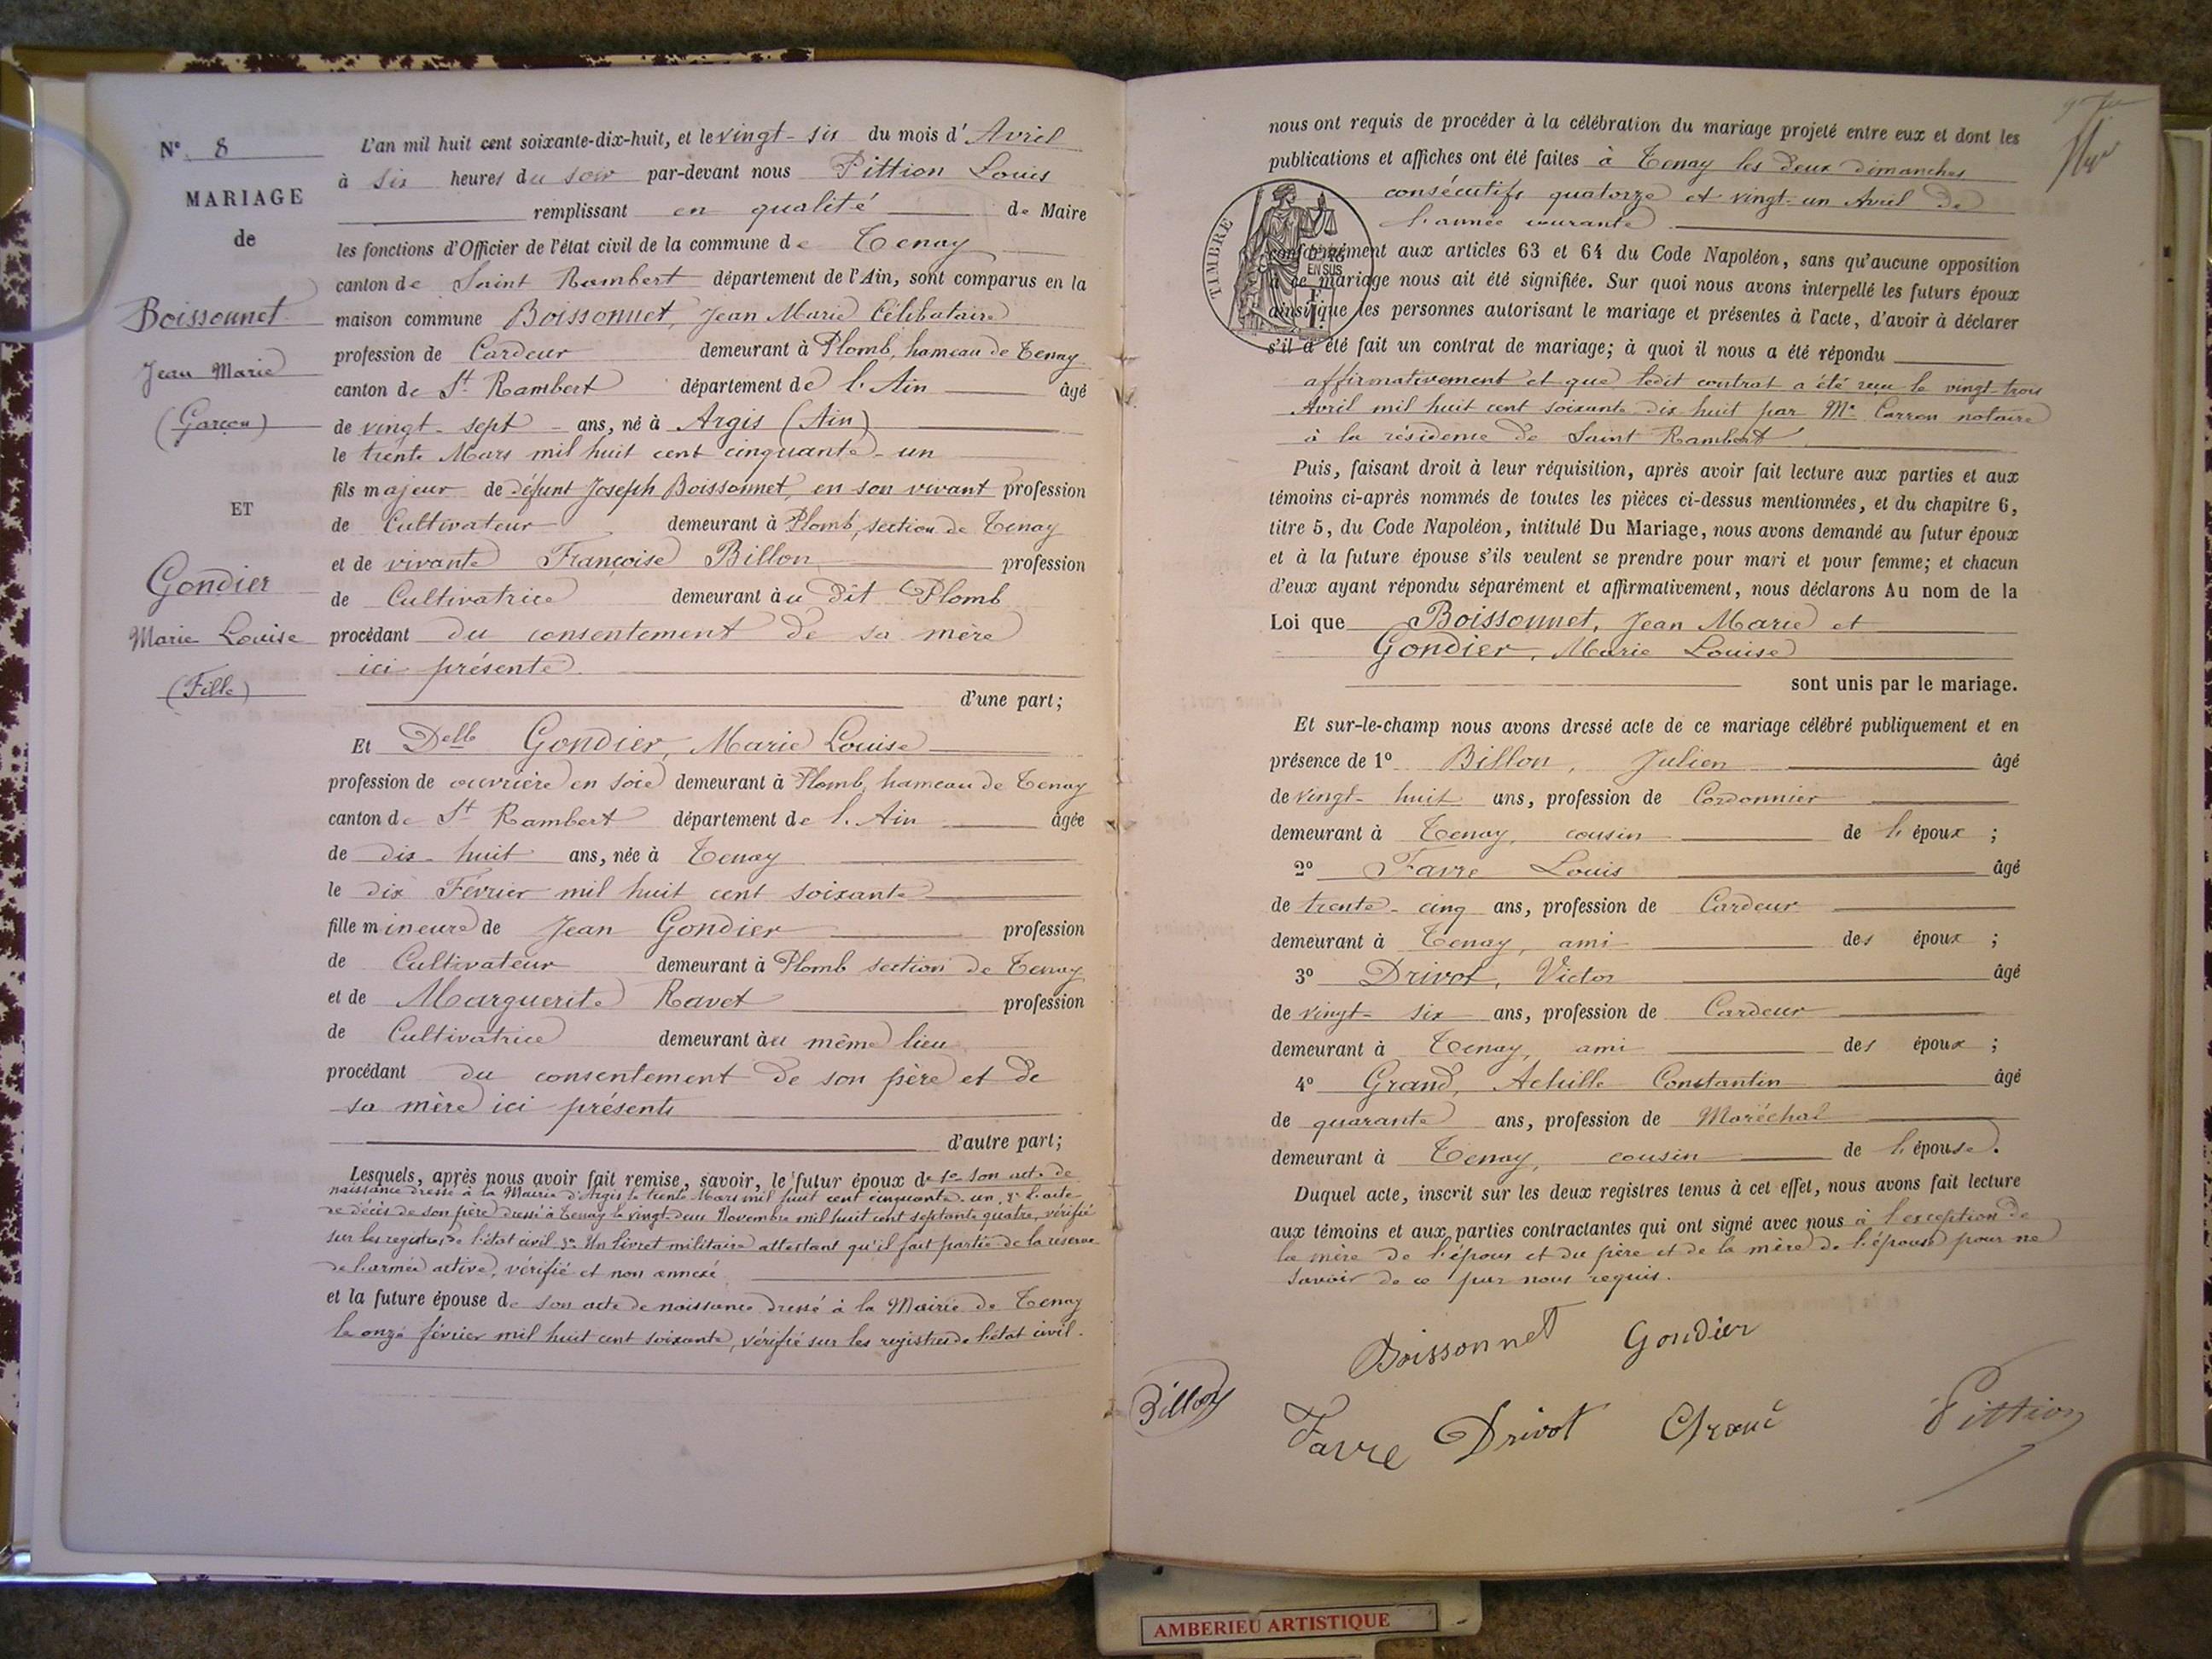 N° 8
MARIAGE
de
Boissonnet
Jean Marie
(Garçon)
ET
Gondier
Marie Louise
(Fille)
L'an mil huit cent soixante-dix-huit, et le vingt-six du mois d'Avril
à six heures du soir par-devant nous Pittion Louis
remplissant en qualité de Maire
les fonctions d'Officier de l'état civil de la commune de Tenay
canton de Saint Rambert département de l'Ain, sont comparus en la
maison commune Boissonnet, Jean Marie Célibataire
profession de Cardeur demeurant à Plomb, hameau de Tenay
canton de St Rambert département de l'Ain âgé
de vingt-sept ans, né à Argis (Ain)
le trente Mars mil huit cent cinquante-un
fils majeur de défunt Joseph Boissonnet, en son vivant profession
de Cultivateur demeurant à Plomb, section de Tenay
et de vivante Françoise Billon profession
de Cultivatrice demeurant au dit Plomb
procédant du consentement de sa mère
ici présente
d'une part;
Et Delle Gondier, Marie Louise
profession de ouvrière en soie demeurant à Plomb, hameau de Tenay
canton de St Rambert département de l'Ain âgée
de dix-huit ans, née à Tenay
le dix Février mil huit cent soixante
fille mineure de Jean Gondier profession
de Cultivateur demeurant à Plomb section de Tenay
et de Marguerite Ravet profession
de Cultivatrice demeurant au même lieu
procédant du consentement de son père et de
sa mère ici présents
d'autre part;
Lesquels, après nous avoir fait remise, savoir, le futur époux de 1° son acte de
naissance dressé à la Mairie d'Argis le trente Mars mil huit cent cinquante-un, 2° l'acte
de décès de son père dressé à Tenay le vingt-deux Novembre mil huit cent septante quatre, vérifié
sur les registres de l'état civil 3° Un livret militaire attestant qu'il fait partie de la réserve
de l'armée active, vérifié et non annexé
et la future épouse de son acte de naissance dressé à la Mairie de Tenay
le onze février mil huit cent soixante, vérifié sur les registres de l'état civil.
nous ont requis de procéder à la célébration du mariage projeté entre eux et dont les
publications et affiches ont été faites à Tenay les deux dimanches
consécutifs quatorze et vingt-un Avril de
l'année courante
conformément aux articles 63 et 64 du Code Napoléon, sans qu'aucune opposition
à ce mariage nous ait été signifiée. Sur quoi nous avons interpellé les futurs époux
ainsi que les personnes autorisant le mariage et présentes à l'acte, d'avoir à déclarer
s'il a été fait un contrat de mariage; à quoi il nous a été répondu
affirmativement et que ledit contrat a été reçu le vingt-trois
Avril mil huit cent soixante-dix huit par Me Carron notaire
à la résidence de Saint Rambert
TIMBRE
EN SUS
Puis, faisant droit à leur réquisition, après avoir fait lecture aux parties et aux
témoins ci-après nommés de toutes les pièces ci-dessus mentionnées, et du chapitre 6,
titre 5, du Code Napoléon, intitulé Du Mariage, nous avons demandé au futur époux
et à la future épouse s'ils veulent se prendre pour mari et pour femme; et chacun
d'eux ayant répondu séparément et affirmativement, nous déclarons Au nom de la
Loi que Boissonnet, Jean Marie et
Gondier, Marie Louise
sont unis par le mariage.
Et sur-le-champ nous avons dressé acte de ce mariage célébré publiquement et en
présence de 1° Billon, Julien âgé
de vingt-huit ans, profession de Cordonnier
demeurant à Tenay, cousin de l'époux ;
2° Favre Louis âgé
de trente-cinq ans, profession de Cardeur
demeurant à Tenay, ami des époux ;
3° Drivot, Victor âgé
de vingt-six ans, profession de Cardeur
demeurant à Tenay, ami des époux ;
4° Grand, Achille Constantin âgé
de quarante ans, profession de Maréchal
demeurant à Tenay, cousin de l'épouse.
Duquel acte, inscrit sur les deux registres tenus à cet effet, nous avons fait lecture
aux témoins et aux parties contractantes qui ont signé avec nous à l'exception de
la mère de l'époux et du père et de la mère de l'épouse pour ne
savoir de ce par nous requis.
Boissonnet Gondier
Billon Favre Drivot Grand Pittion
AMBERIEU ARTISTIQUE